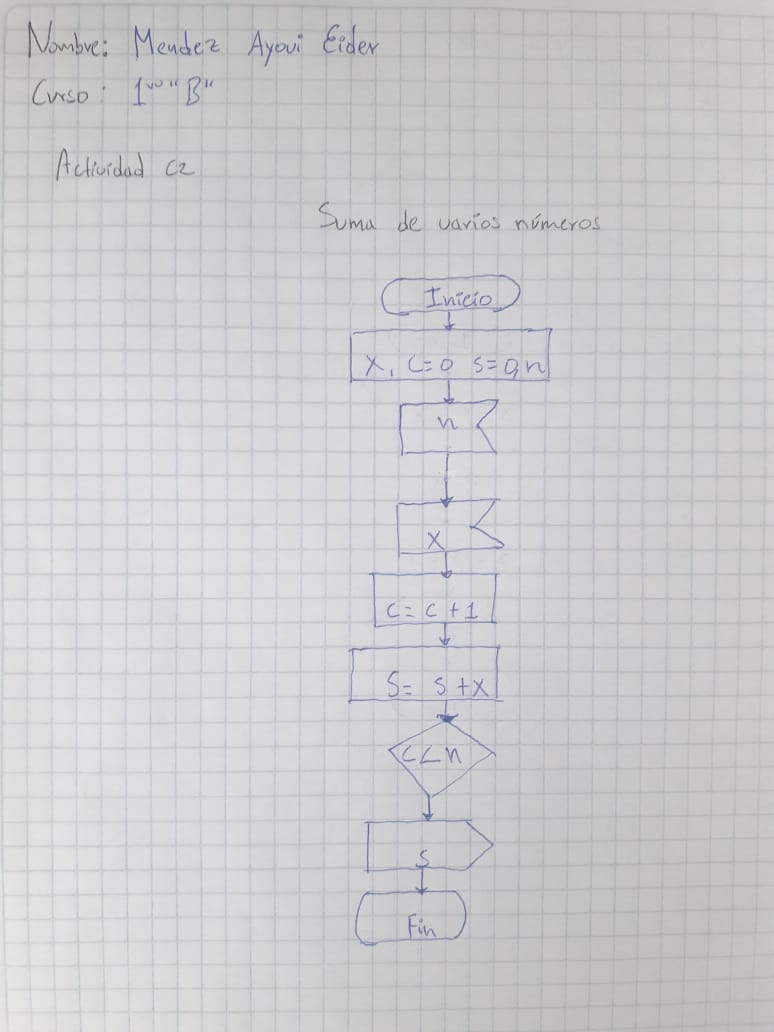 Nombre: Mendez Ayovi Eider
Curso: 1ro "B"
Actividad C2
Suma de varios números
Inicio
X, C=0 S=0,n
n
X
C= C+1
S= S+X
C<n
S
Fin